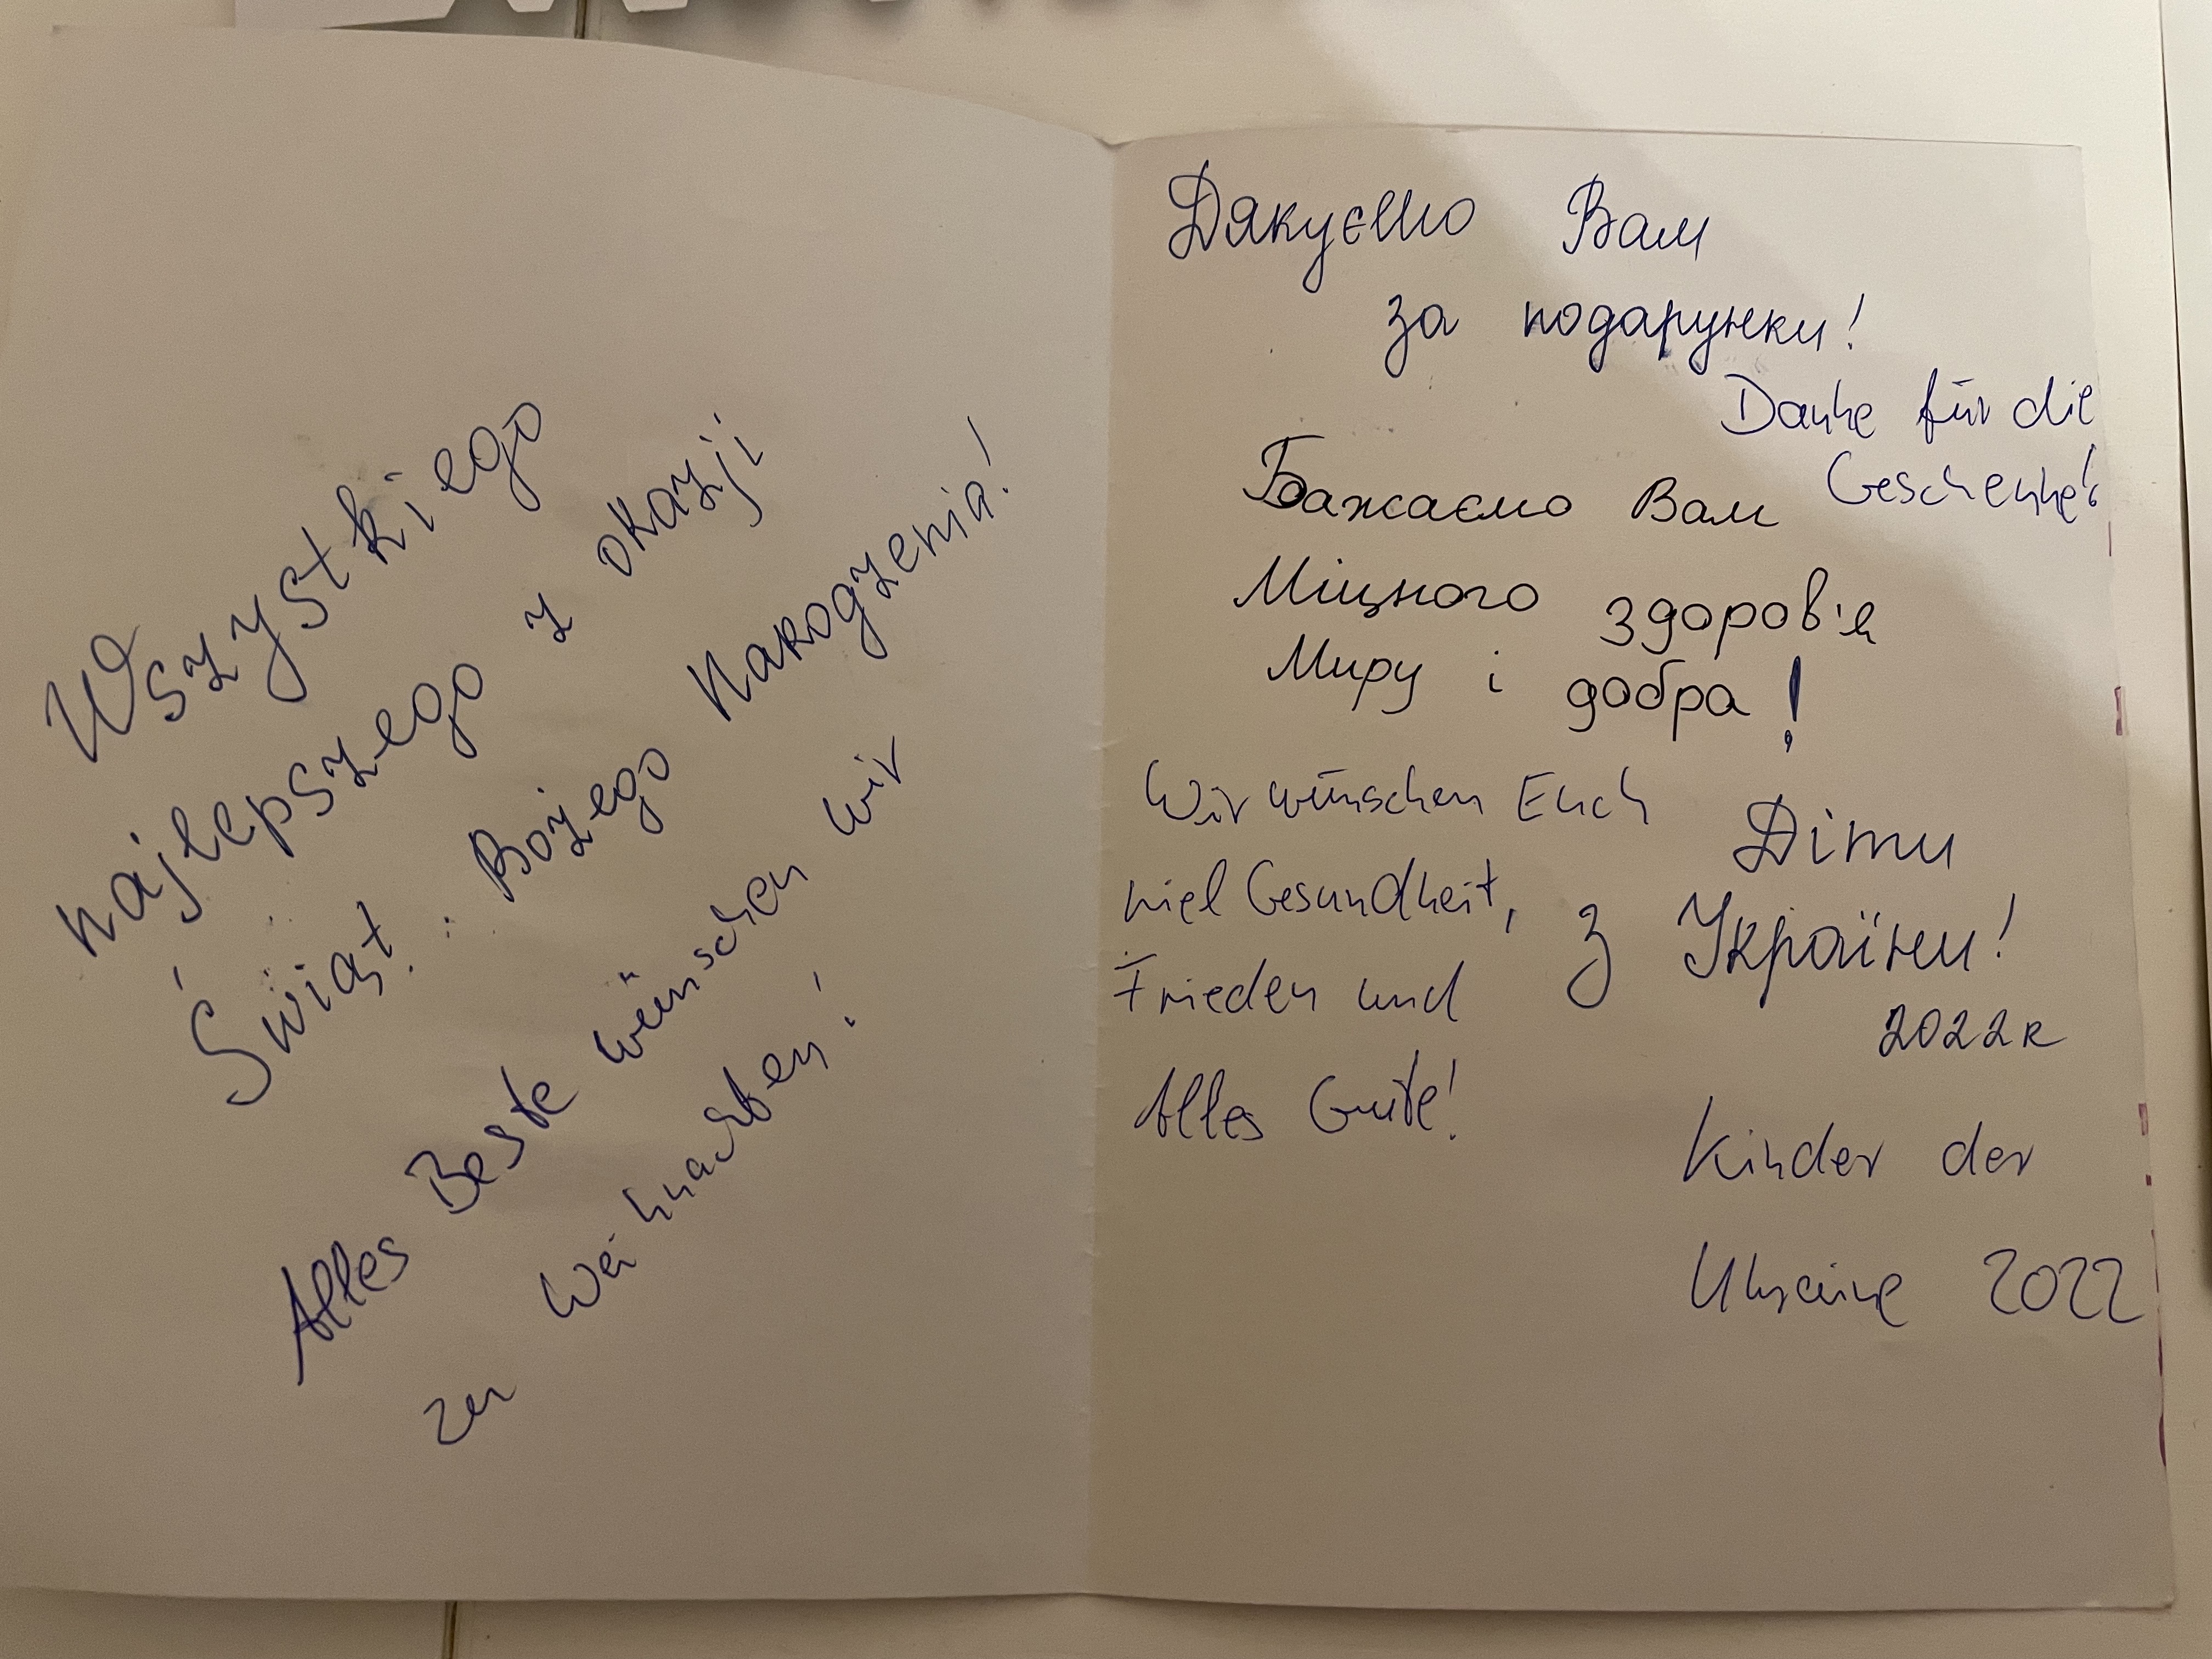 Wszystkiego
najlepszego z okazji
Świąt Bożego Narodzenia!
Alles Beste wünschen wir
zu Weihnachten!
Дякуємо Вам
за подарунки!
Danke für die
Geschenke!
Бажаємо Вам
Міцного здоров'я
Миру і добра!
Wir wünschen Euch
viel Gesundheit,
Frieden und
Alles Gute!
Діти
з України!
2022R
Kinder der
Ukraine 2022